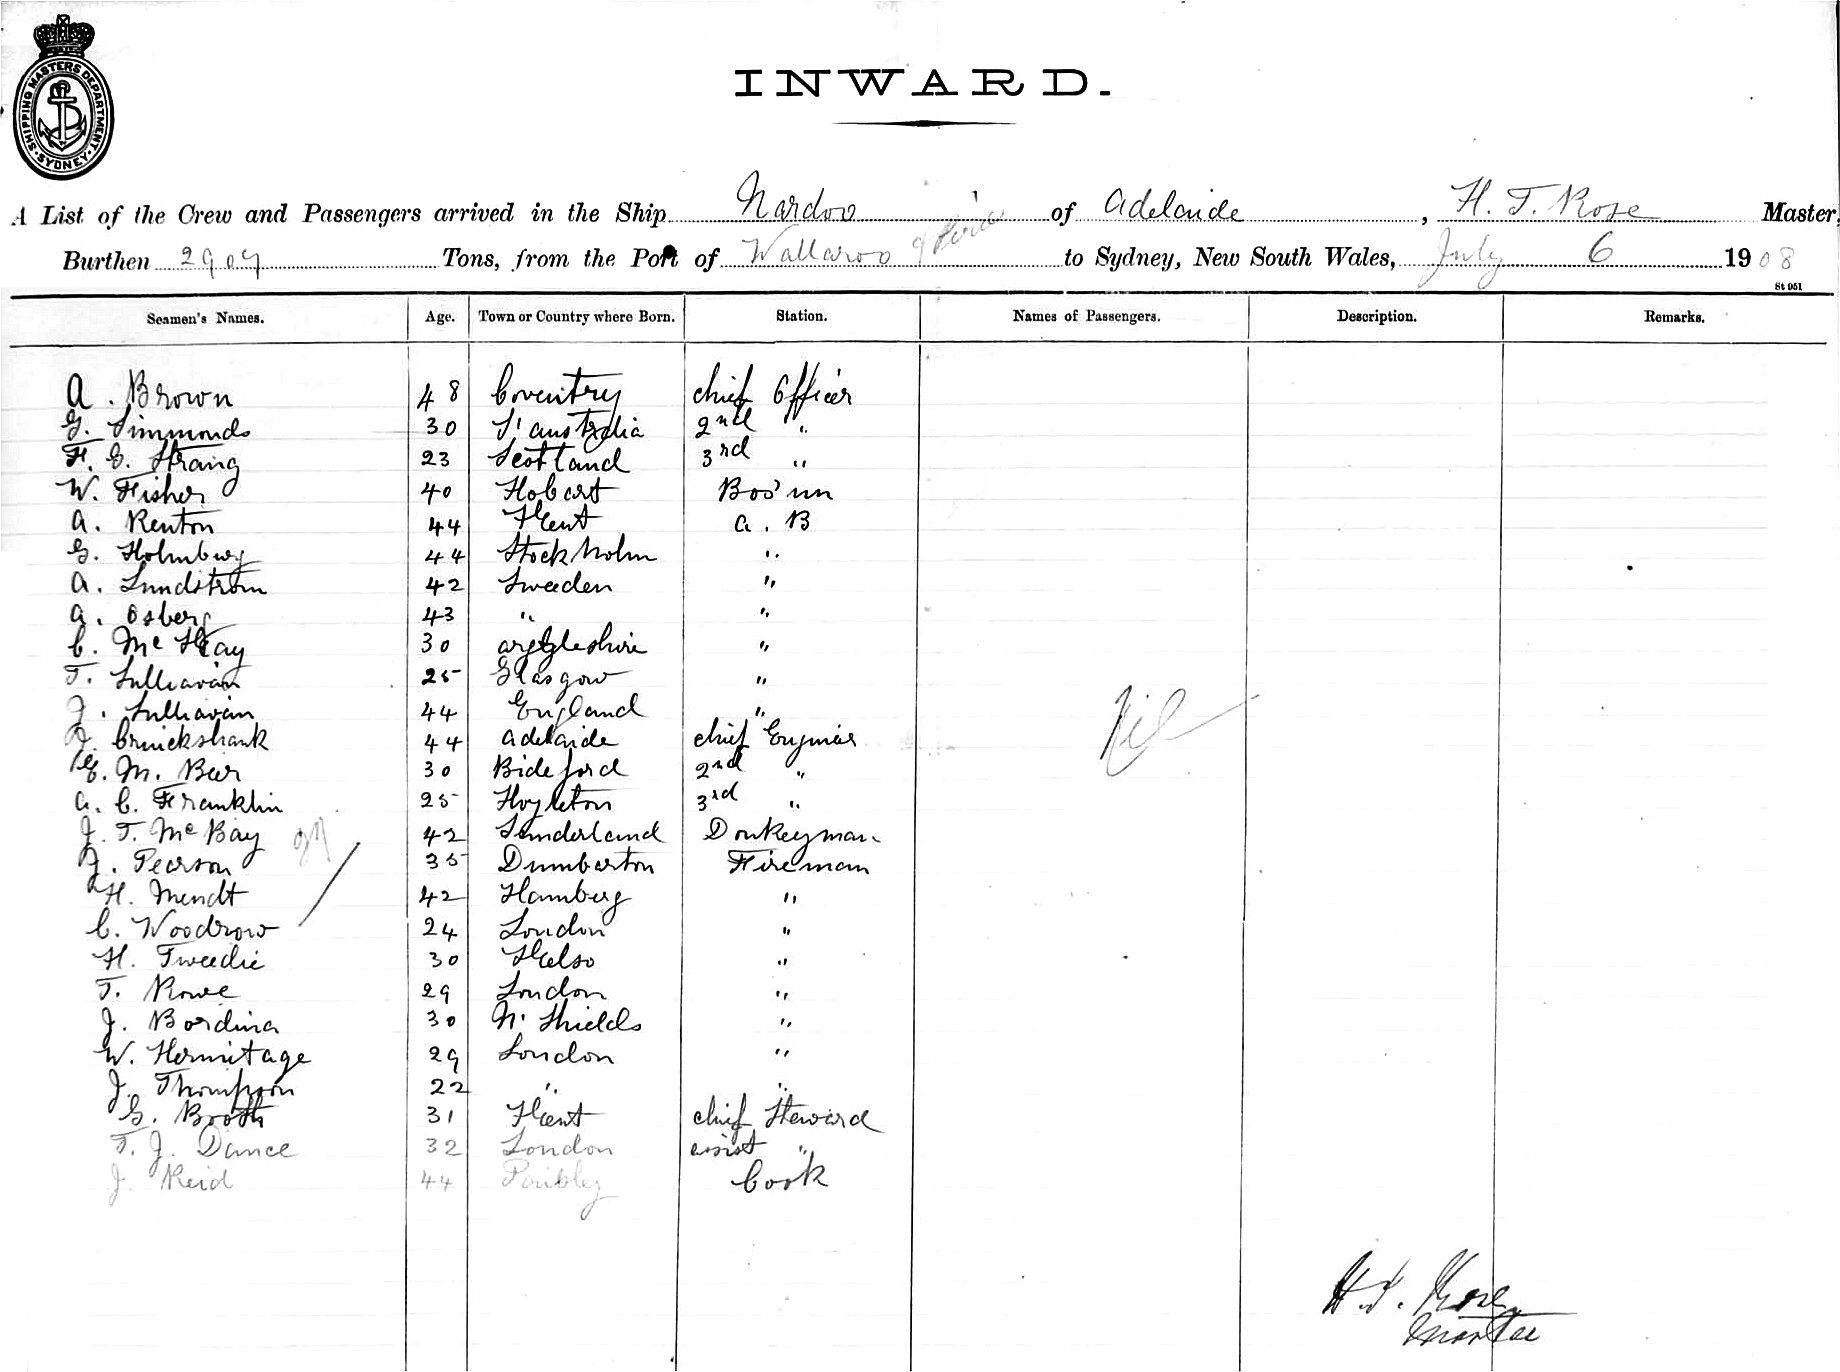 SHIPPING MASTERS DEPARTMENT. SYDNEY.
INWARD.
A List of the Crew and Passengers arrived in the Ship Nardoo of Adelaide, H. T. Rose Master,
Burthen 2907 Tons, from the Port of Wallaroo & Pirie to Sydney, New South Wales, July 6 1908
St 051
Seamen's Names. Age. Town or Country where Born. Station. Names of Passengers. Description. Remarks.
A. Brown 48 Coventry Chief Officer
G. Simmonds 30 S. Australia 2nd "
F. G. Strang 23 Scotland 3rd "
W. Fisher 40 Hobart Bos'un
A. Renton 44 Kent A. B
G. Holmberg 44 Stockholm "
A. Lundstrom 42 Sweeden "
A. Osberg 43 " "
C. McKay 30 Argyleshire "
T. Sullivan 25 Glasgow "
J. Sullivan 44 England "
J. Cruickshank 44 Adelaide Chief Engineer
G. M. Beer 30 Bideford 2nd "
A. C. Franklin 25 Hoyleton 3rd "
J. T. McBay 42 Sunderland Donkeyman
J. Pearson 35 Dumbarton Fireman
H. Mendt 42 Hamberg "
C. Woodrow 24 London "
H. Tweedie 30 Kelso "
T. Rowe 29 London "
J. Bordina 30 N. Shields "
W. Hermitage 29 London "
J. Thompson 22 " "
G. Booth 31 Kent Chief Steward
T. J. Dance 32 London assist "
J. Reid 44 Cook
Nil
H. T. Rose
Master